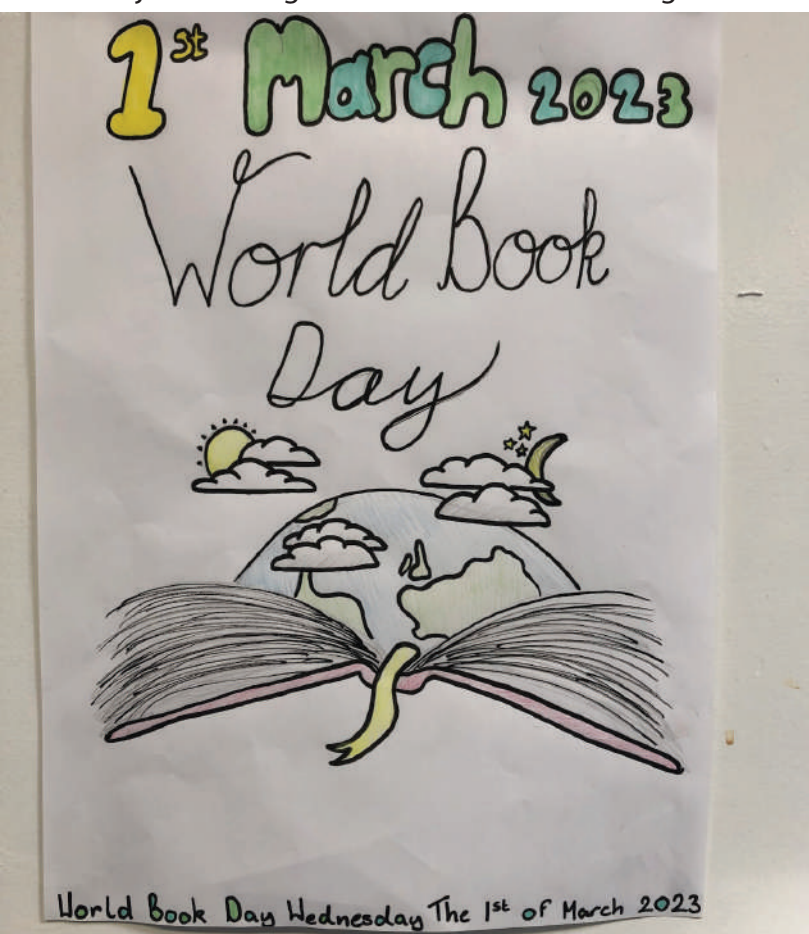 1st March 2023
World Book
Day
World Book Day Wednesday The 1st of March 2023